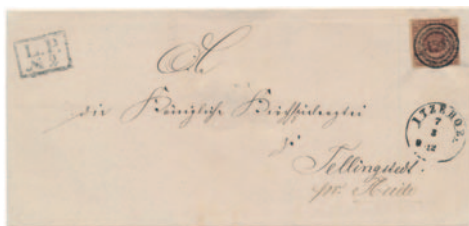 L.P.
№ 2
An
die Königliche Kirchspielvogtei
zu
Tellingstedt.
pr. Heide
ITZEHOE.
7
3
12